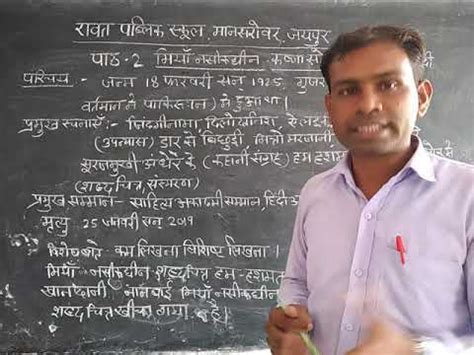 रावत पब्लिक स्कूल, मानसरोवर, जयपुर
पाठ-2 मियाँ नसीरुद्दीन कृष्णा सो
परिचय - जन्म 18 फरवरी सन 1925, गुजरा
वर्तमान में पाकिस्तान) में हुआ था।
प्रमुख रचनाएँ:- जिंदगीनामा, दिलोदानिश, ऐ लड़
(उपन्यास) डार से बिछुड़ी, मित्रो मरजानी,
सूरजमुखी अंधेरे के (कहानी संग्रह) हम हशम
(शब्द चित्र, संस्मरण)
प्रमुख सम्मान:- साहित्य अकादमी सम्मान, हिंदी अ
मृत्यु 25 जनवरी सन् 2019
विशेषता:- कम लिखना विशिष्ट लिखना।
मियाँ नसीरुद्दीन शब्दचित्र हम-हशमत
खानदानी नानबाई मियाँ नसीरुद्दीन
शब्द चित्र खींचा गया है।